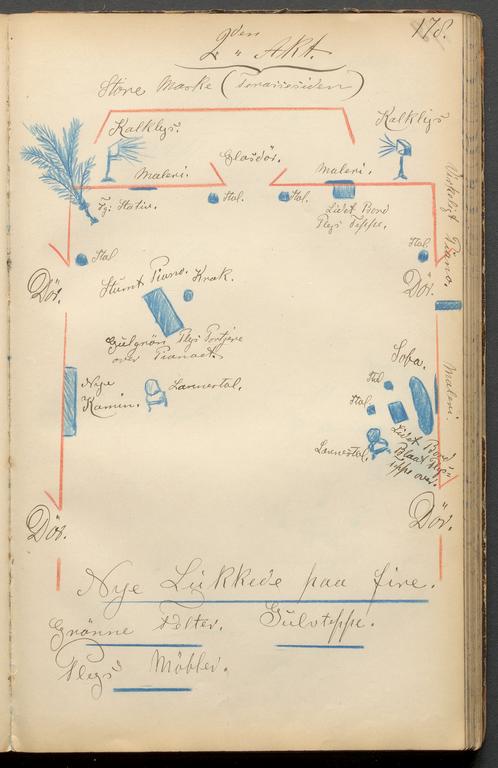 178.
2den Akt.
Store Maske (Terassesiden)
Kalklys.
Kalklys
Glasdör.
Maleri.
Maleri.
Stol.
Stol.
Lidet Bord
Plys Teppe.
Virkeligt Piano.
Stol
Stol.
Dör.
Dör.
Stumt Piano. Krak.
Gulgrön Plys Portiere
over Pianoet.
Nye
Kamin.
Lænestol.
Sofa.
Maleri.
Stol.
Stol.
Lænestol.
Lidet Bord
Blaat Plys-
teppe over.
Dör.
Dör.
Nye Lukkede paa fire.
Grönne Felter. Gulvteppe.
Plys Möbler.